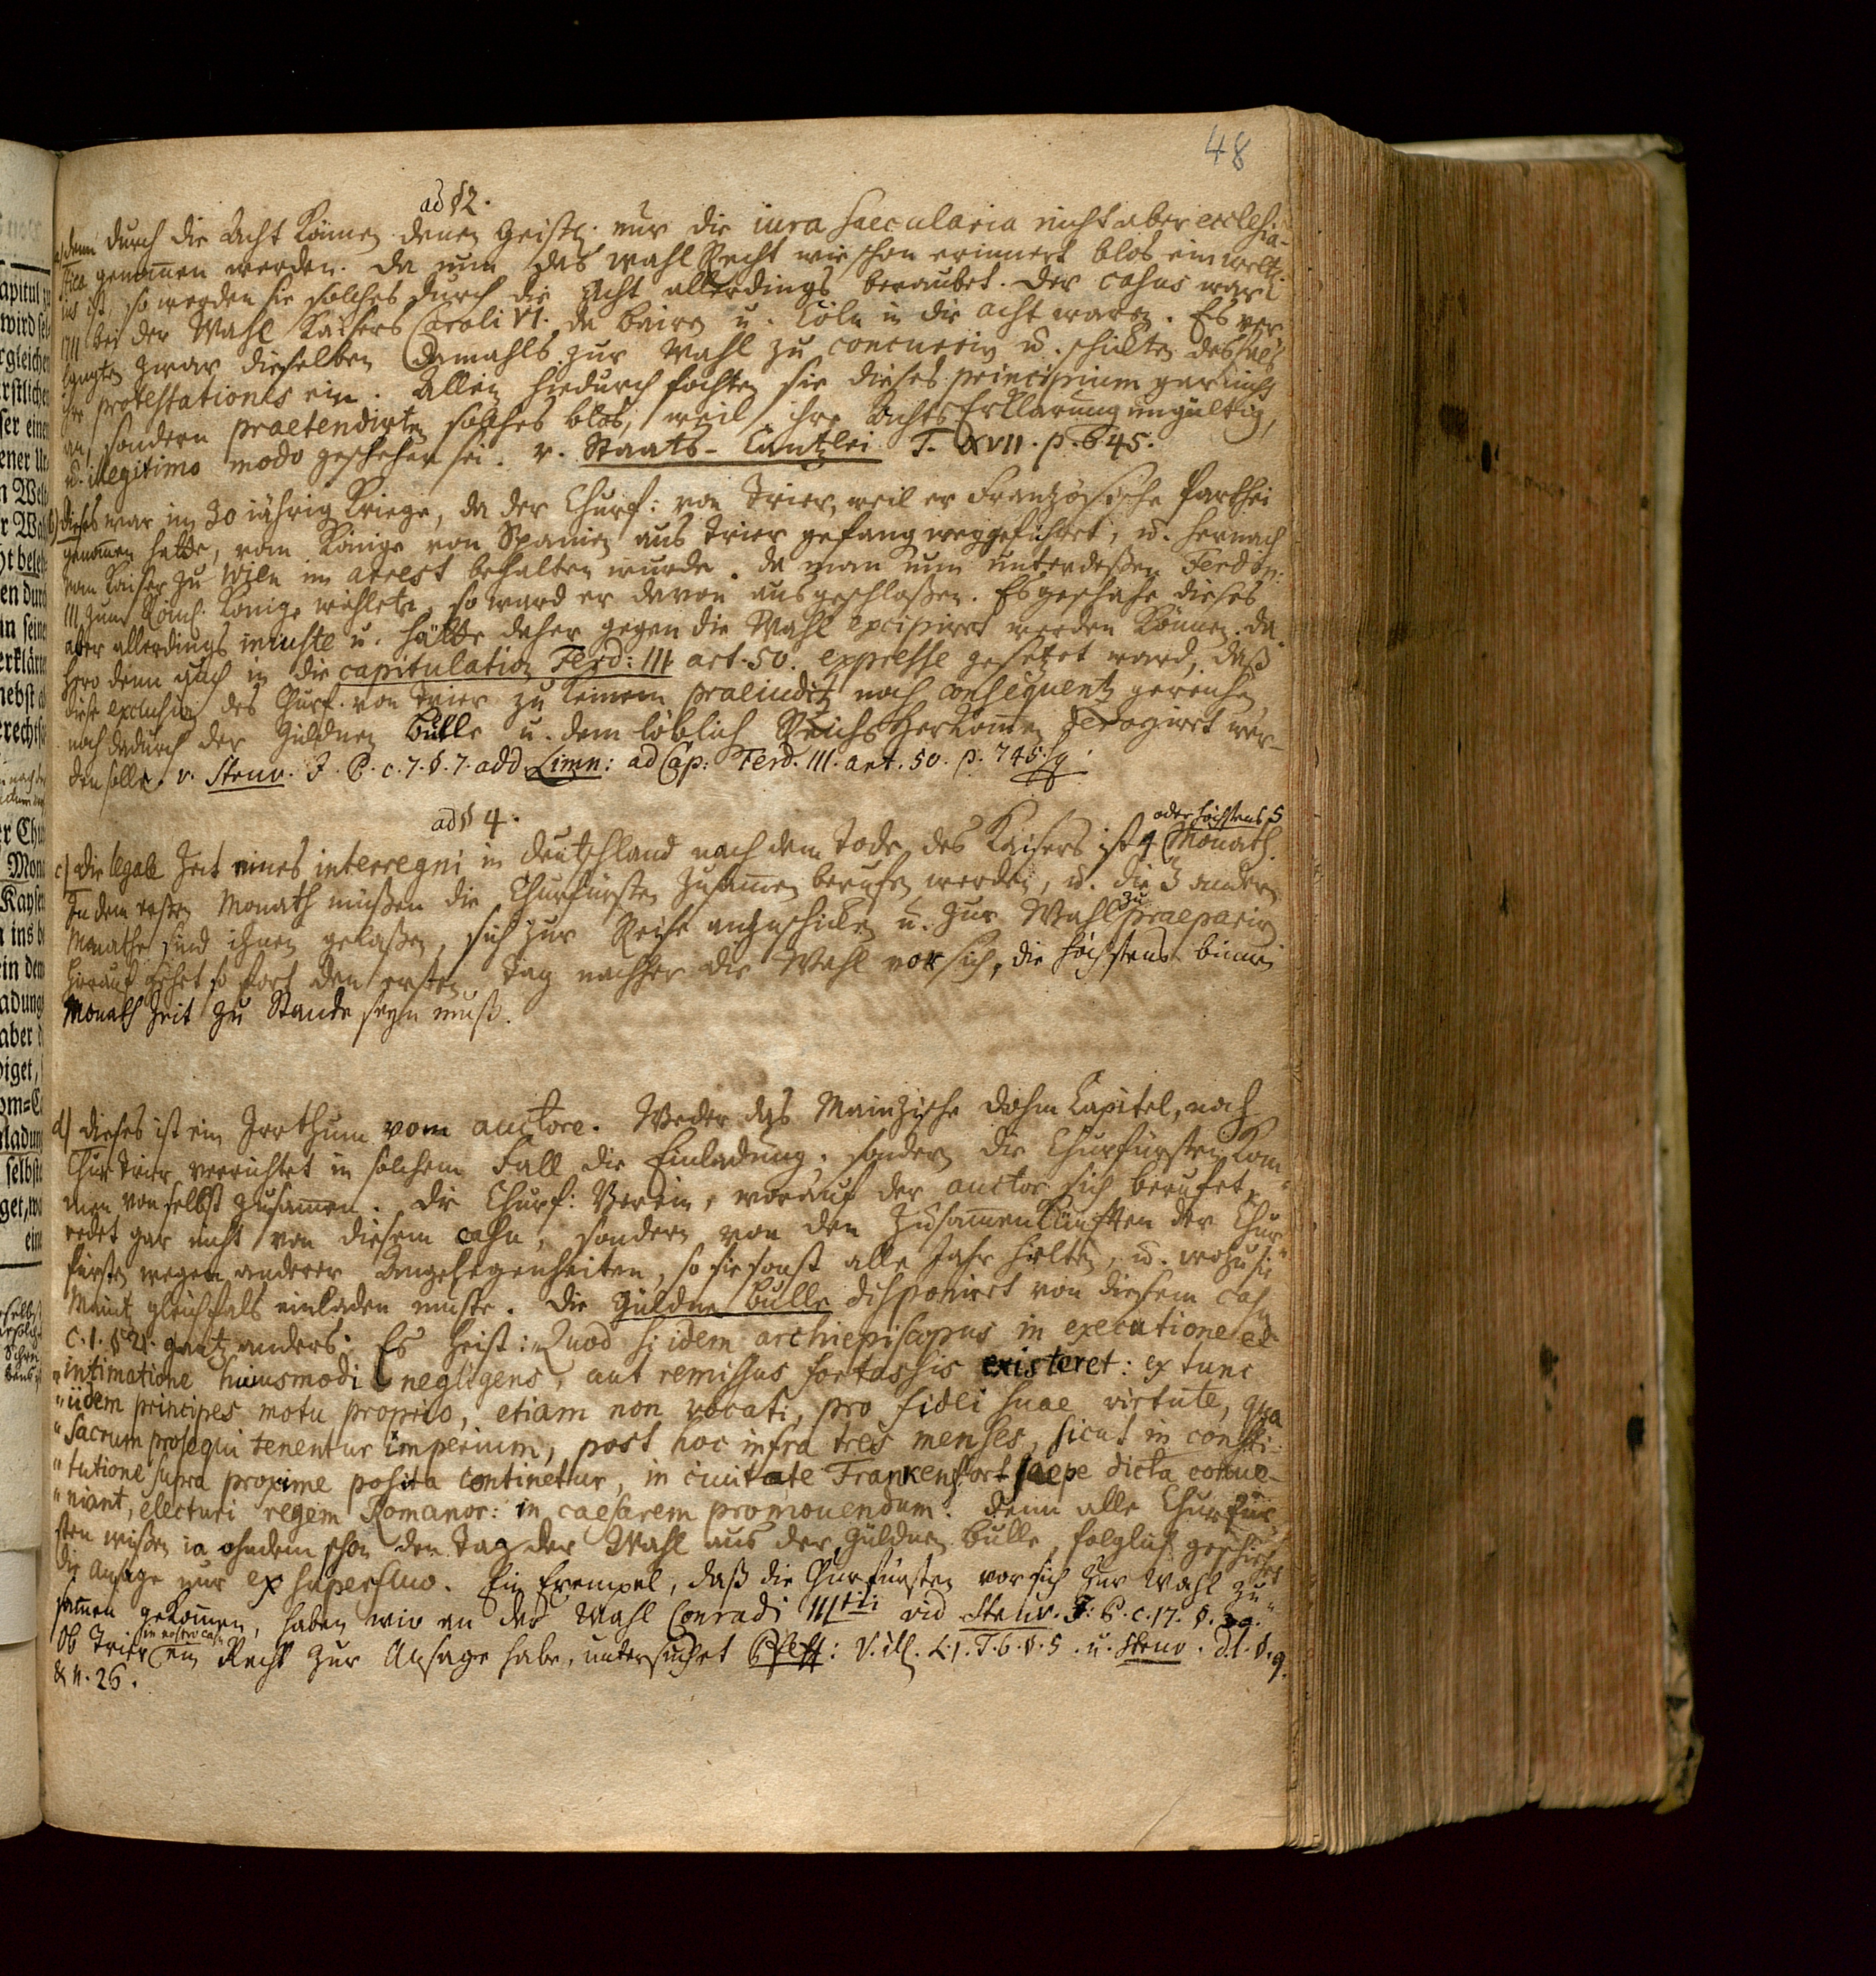 48
ad §2.
a) denn durch die Acht können denen Geistl. nur die iura saecularia nicht aber ecclesia-
stica genommen werden. Da nun das Wahl Recht wie schon erinnert blos ein weltl.
ius ist, so werden sie solches durch die Acht allerdings beraubet. Der casus war
1711 bei der Wahl Kaisers Caroli VI. da Baiern u. Cöln in die Acht waren. Es ver-
langten zwar dieselben damahls zur Wahl zu concuriren u. schickten deshalb
ihre protestationes ein. Allein hiedurch fochten sie dieses principium gar nicht
an, sondern praetendirten solches blos, weil ihre Achts Erklärung ungültig,
u. illegitimo modo geschehen sei. v. Staats-Cantzlei T. XVII. p. 645.
b) dieses war im 30 iährig Kriege, da der Churf: von Trier, weil er Französische Parthei
genommen hatte, vom Könige von Spanien aus Trier gefang weggeführt, u. hernach
vom Kaiser zu Wien im arrest behalten wurde. Da man nun unterdeßen Ferdin:
III. zum Röm. Könige wehlete, so ward er davon ausgeschloßen. Es geschahe dieses
aber allerdings iniuste u. hätte daher gegen die Wahl excipiret werden können. Da-
hero denn auch in die capitulation Ferd: III. art. 50. expresse gesetzet ward, daß
diese exclusion des Churf. von Trier zu keinem praeiuditz noch consequentz gereichen
noch dadurch der Güldnen Bulle u. dem löblich Reichs Herkommen derogiret wer-
den solle. v. Struv. J. P. c. 7. §. 7. add. Limn: ad Cap: Ferd. III. art. 50. p. 745. sq.
ad § 4.
oder höchstens 5
c) Die legale Zeit eines interregni in Deutschland nach dem Tode des Kaisers ist 4 Monath.
In dem ersten Monath müßen die Churfürsten zusammen berufen werden, u. die 3 andern
zu
Monathe sind ihnen gelaßen, sich zur Reise anzuschicken u. zur Wahl praepariren
hierauf gehet so fort den ersten Tag nachher die Wahl vor sich, die höchstens binnen
Monath Zeit zu Stande seyn muß.
d) dieses ist ein Irrthum vom auctore. Weder das Mainzische Dohm Capitel, noch
Chur Trier verrichtet in solchem Fall die Einladung; sondern die Churfürsten kom-
men von selbst zusammen. Die Churf: Verein, worauf der auctor sich berufet,
redet gar nicht von diesem casu, sondern von den Zusammenkünften der Chur-
fürsten wegen anderer Angelegenheiten, so sie sonst alle Jahr hielten, u. wozu sie
Maintz gleichfals einladen muste. Die Güldne Bulle disponiret von diesem casu
c. 1. § 21. gantz anders. Es heist: Quod si idem archiepiscopus in executione et
"intimatione huiusmodi negligens, aut remissus fortassis existeret: ex tunc
"iidem principes motu proprio, etiam non vocati, pro fidei suae virtute, qua
"sacrum prosequi tenentur imperium, post hoc infra tres menses, sicut in consti-
"tutione supra proxime posita continetur, in ciuitate Frankenfort saepe dicta conue-
"niant, electuri regem Romanor: in caesarem promouendum. Denn alle Churfür-
sten wißen ia ohndem schon den Tag der Wahl aus der Güldnen Bulle, folglich geschiehet
die Ansage nur ex superfluo. Ein Exempel, daß die Churfürsten vor sich zur Wahl zu-
sammen gekommen, haben wir an der Wahl Conradi III tii vid Struv. J: P. c. 17. §. 39.
in nostro casu
Ob Trier ein Recht zur Ansage habe, untersuchet Pfeff: V. ill. L. 1. T. 6. §. 5. u. Struv. d. l. §. 9.
& n. 26.